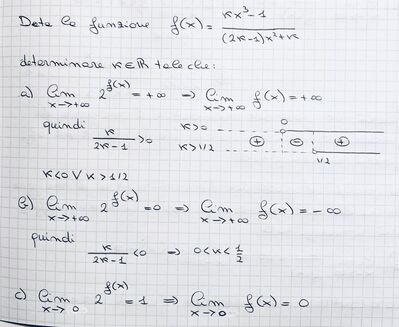 Data la funzione f(x) = (kx³-1)/((2k-1)x²+k)
determinare k∈ℝ tale che:
a) lim x→+∞ 2^f(x) = +∞ ⇒ lim x→+∞ f(x) = +∞
quindi k/(2k-1) > 0 k>0 0
k>1/2 + - +
1/2
k<0 ∨ k>1/2
b) lim x→+∞ 2^f(x) = 0 ⇒ lim x→+∞ f(x) = -∞
quindi
k/(2k-1) < 0 ⇒ 0<k<1/2
c) lim x→0 2^f(x) = 1 ⇒ lim x→0 f(x) = 0